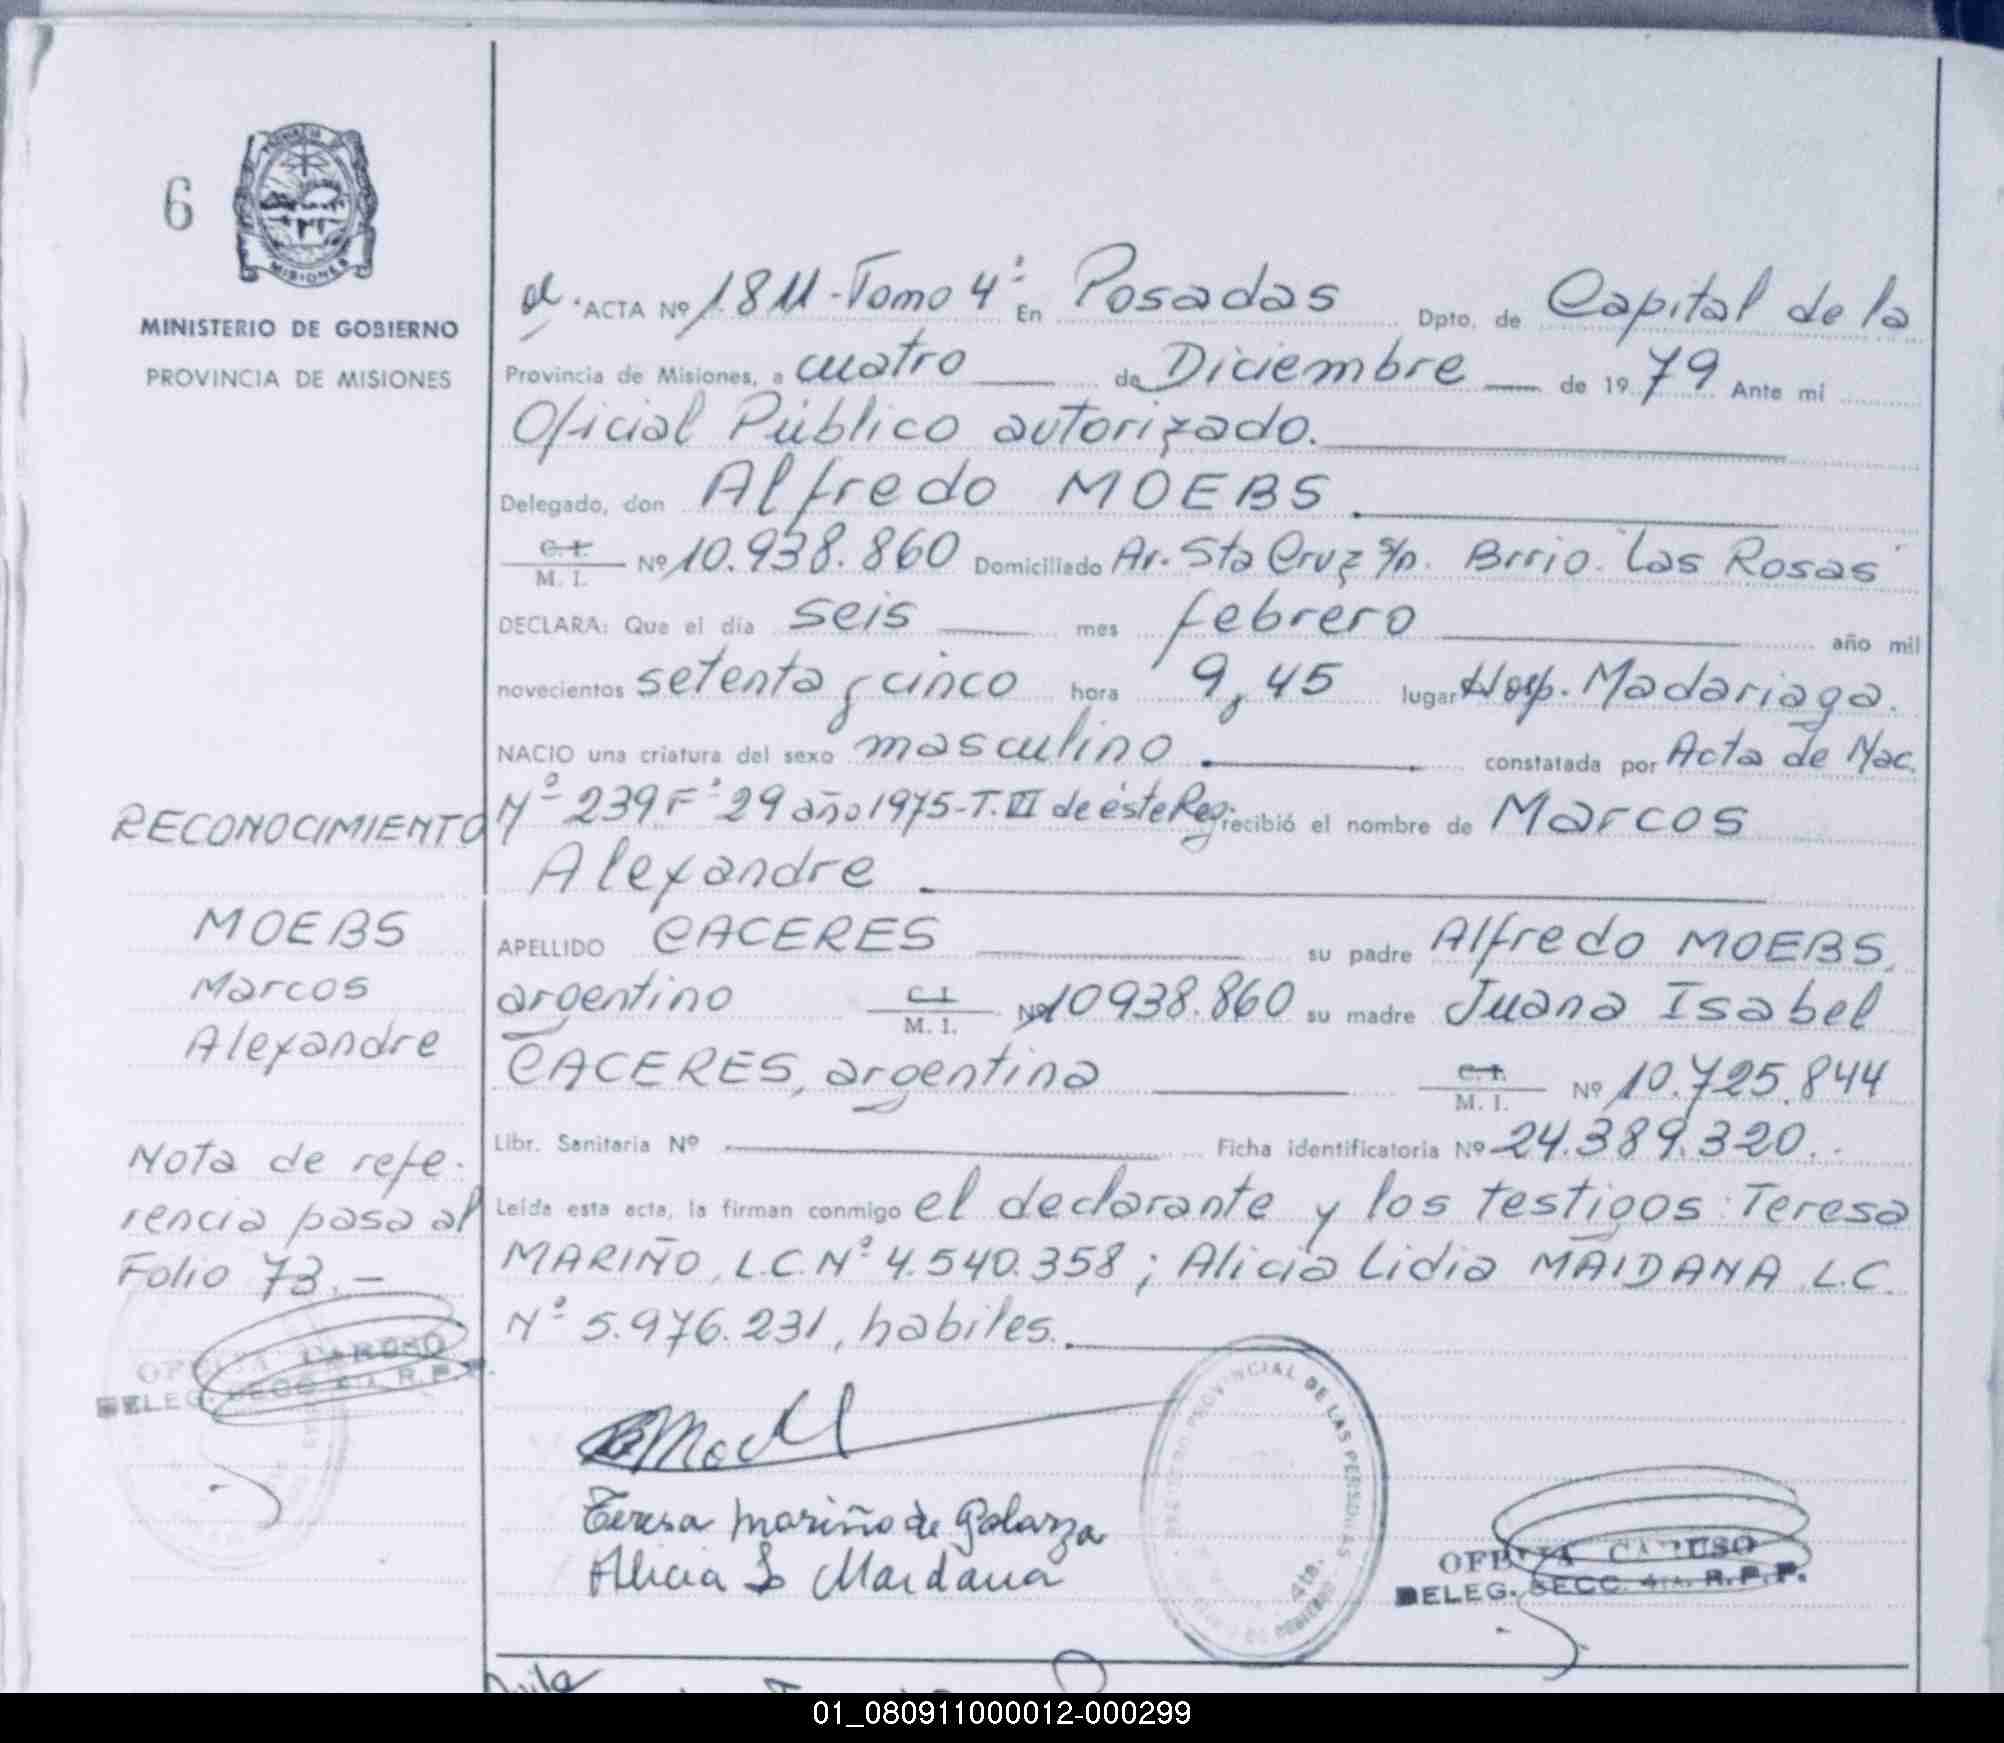 6
PROVINCIA DE
MISIONES
MINISTERIO DE GOBIERNO
PROVINCIA DE MISIONES
ACTA Nº 1811 - Tomo 4º En Posadas Dpto. de Capital de la
Provincia de Misiones, a cuatro de Diciembre de 1979 Ante mi
Oficial Público autorizado.
Delegado, don Alfredo MOEBS
C.I.
M. I. Nº 10.938.860 Domiciliado Av. Sta Cruz s/n. Brrio. "Las Rosas"
DECLARA: Que el día seis mes febrero año mil
novecientos setenta y cinco hora 9,45 lugar Hosp. Madariaga.
NACIO una criatura del sexo masculino constatada por Acta de Nac.
Nº 239 Fº 29 año 1975 - T. III de éste Reg. recibió el nombre de Marcos
Alexandre
APELLIDO CACERES su padre Alfredo MOEBS,
argentino C.I. M. I. Nº 10938.860 su madre Juana Isabel
CACERES, argentina C.I. M. I. Nº 10.725.844
Libr. Sanitaria Nº Ficha identificatoria Nº 24.389.320.
Leída esta acta, la firman conmigo el declarante y los testigos: Teresa
MARIÑO, L.C. Nº 4.540.358; Alicia Lidia MAIDANA L.C.
Nº 5.976.231, habiles.
RECONOCIMIENTO
MOEBS
Marcos
Alexandre
Nota de refe-
rencia pasa al
Folio 73.-
OFELIA CARUSO
DELEG. SECC. 4ta. R.P.P.
Teresa Mariño de Galarza
Alicia L. Maidana
PROVINCIAL DE LAS PERSONAS
4ta.
OFELIA CARUSO
DELEG. SECC. 4ta. R.P.P.
01_080911000012-000299